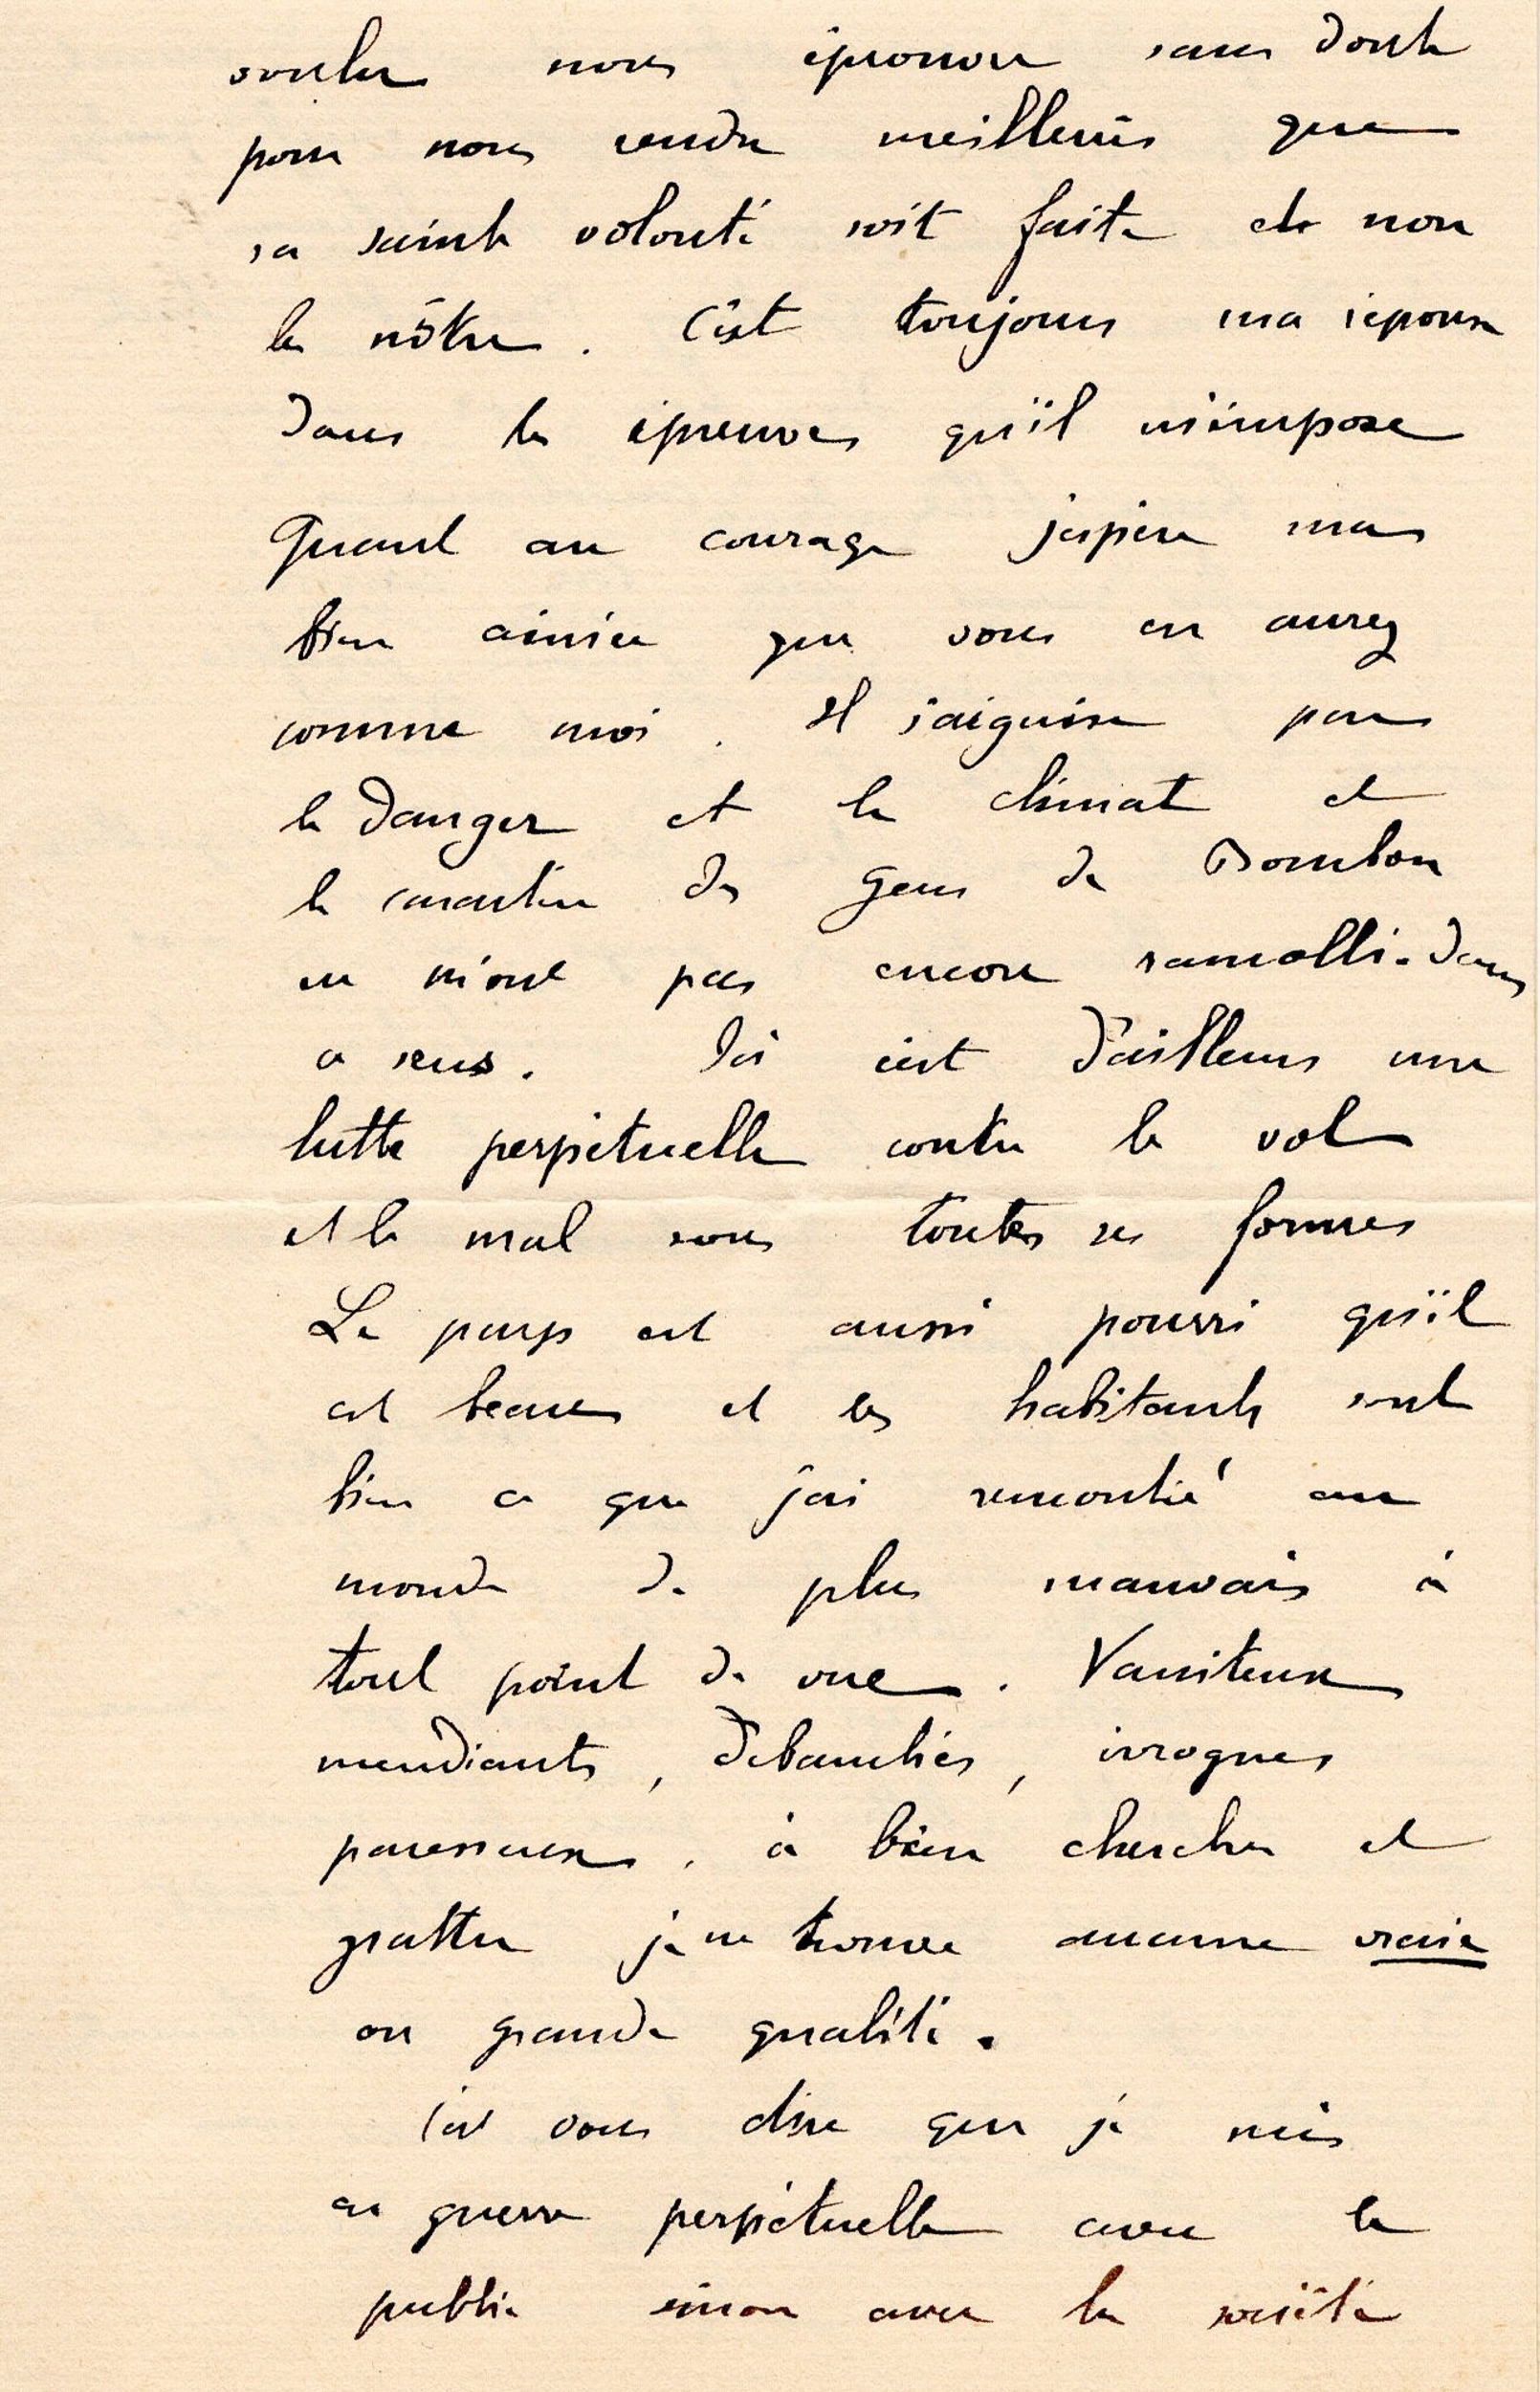 voulu nous éprouver sans doute
pour nous rendre meilleurs que
sa sainte volonté soit faite et non
la nôtre. C'est toujours ma réponse
dans les épreuves qu'il m'impose
Quant au courage j'espère ma
bien aimée que vous en aurez
comme moi. Il s'aiguise par
le danger et le climat et
le caractère des gens de Bourbon
ne m'ont pas encore ramolli dans
ce sens. Ici c'est d'ailleurs une
lutte perpétuelle contre le vol
et le mal sous toutes ses formes
Le pays est aussi pourri qu'il
est beau et les habitants sont
bien ce que j'ai rencontré au
monde de plus mauvais à
tout point de vue. Vaniteux
mendiants, débauchés, ivrognes
paresseux, à bien chercher et
gratter je ne trouve aucune vraie
ou grande qualité.
C'est vous dire que je suis
en guerre perpétuelle avec le
public sinon avec la société